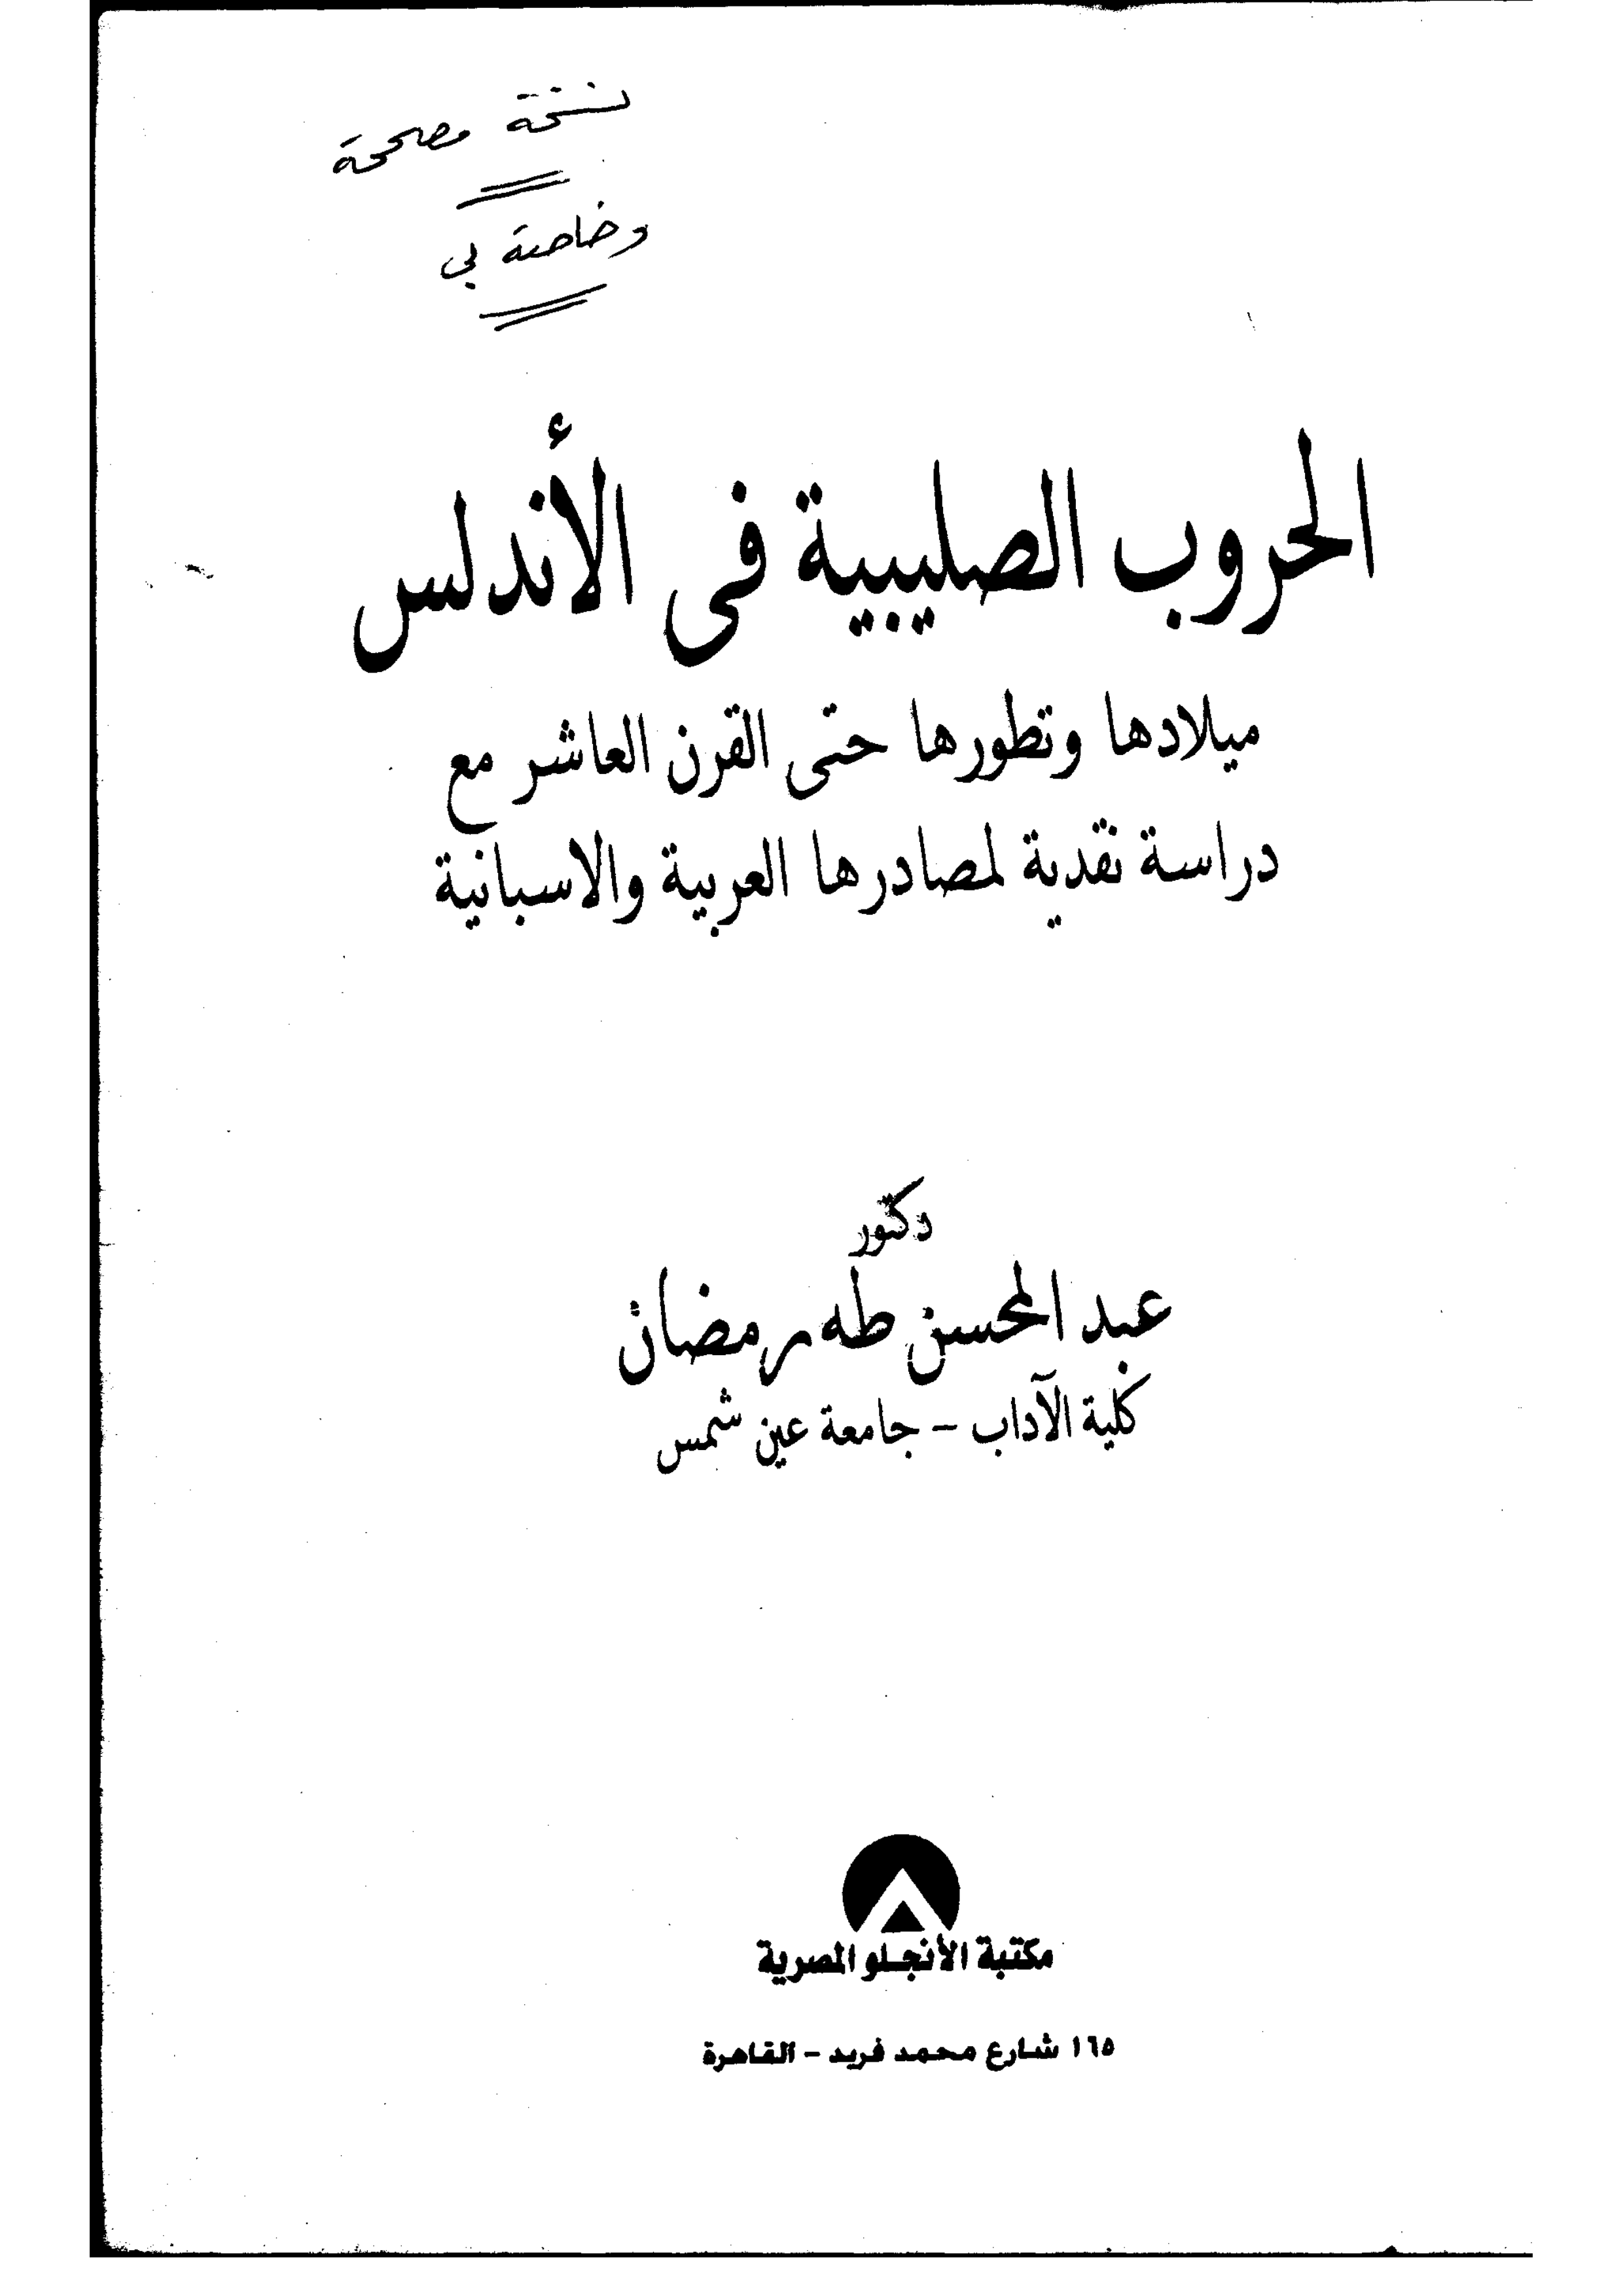 نسخة مصححة
وخاصة بي
الحروب الصليبية فى الأندلس
ميلادها وتطورها حتى القرن العاشر مع
دراسة نقدية لمصادرها العربية والاسبانية
دكتور
عبد المحسن طه رمضان
كلية الآداب - جامعة عين شمس
مكتبة الأنجلو المصرية
١٦٥ شارع محمد فريد - القاهرة